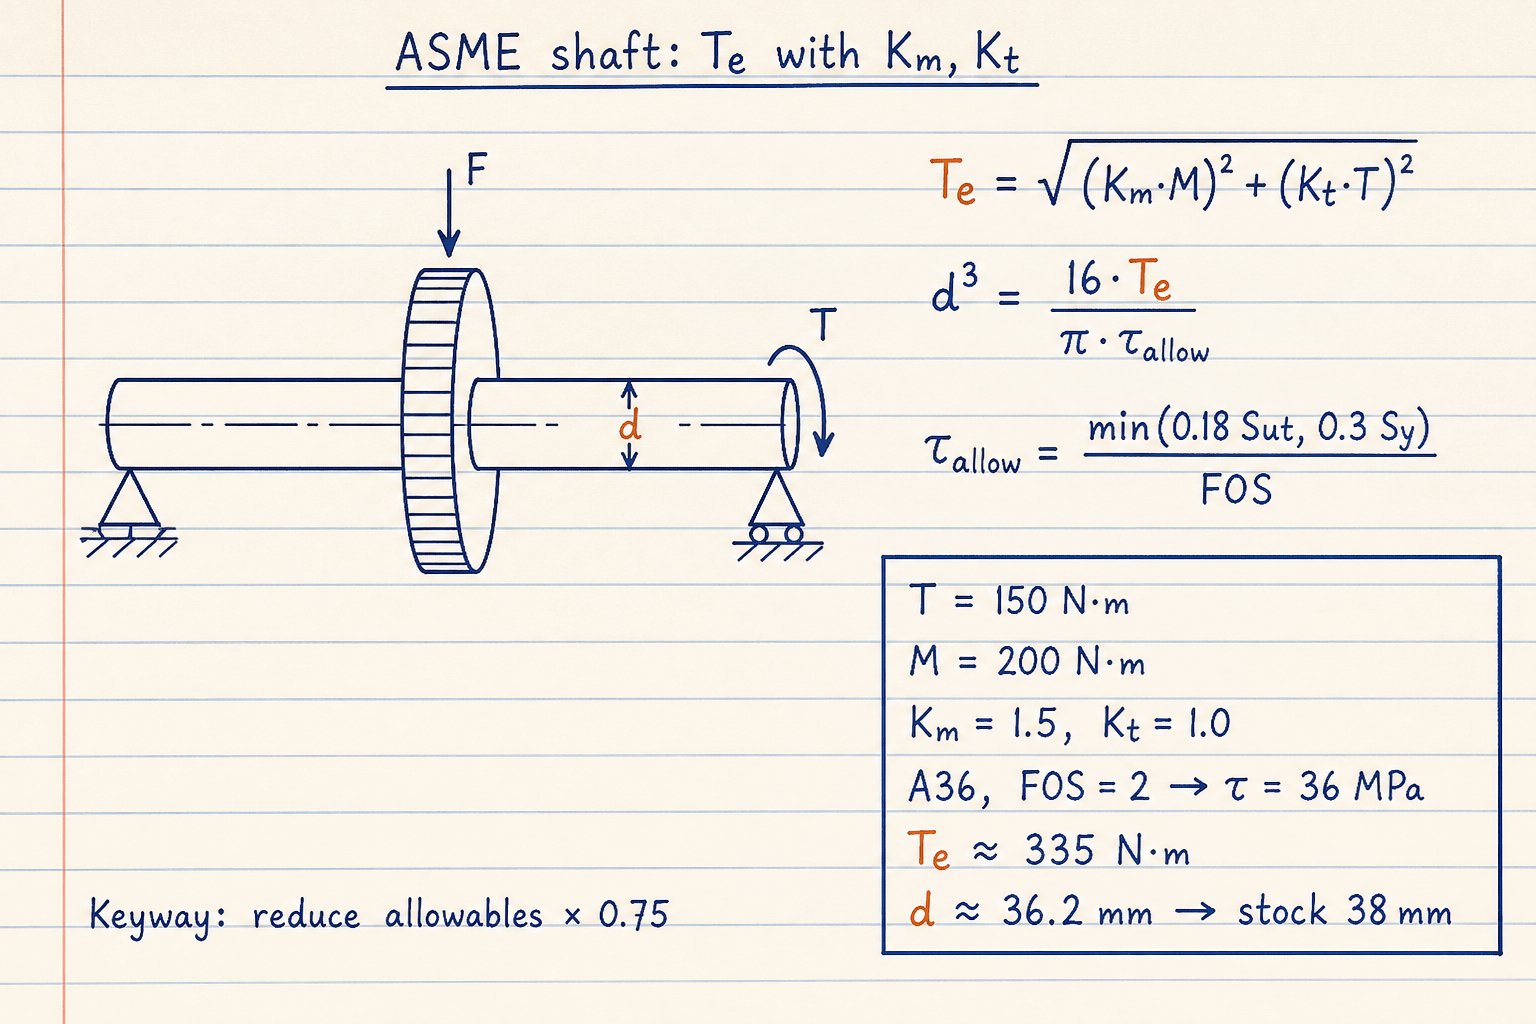 ASME shaft: Te with Km, Kt
F
T
d
Te = √(Km·M)² + (Kt·T)²
d³ = 16·Te / π·τallow
τallow = min(0.18 Sut, 0.3 Sy) / FOS
T = 150 N·m
M = 200 N·m
Km = 1.5, Kt = 1.0
A36, FOS = 2 → τ = 36 MPa
Te ≈ 335 N·m
d ≈ 36.2 mm → stock 38 mm
Keyway: reduce allowables × 0.75